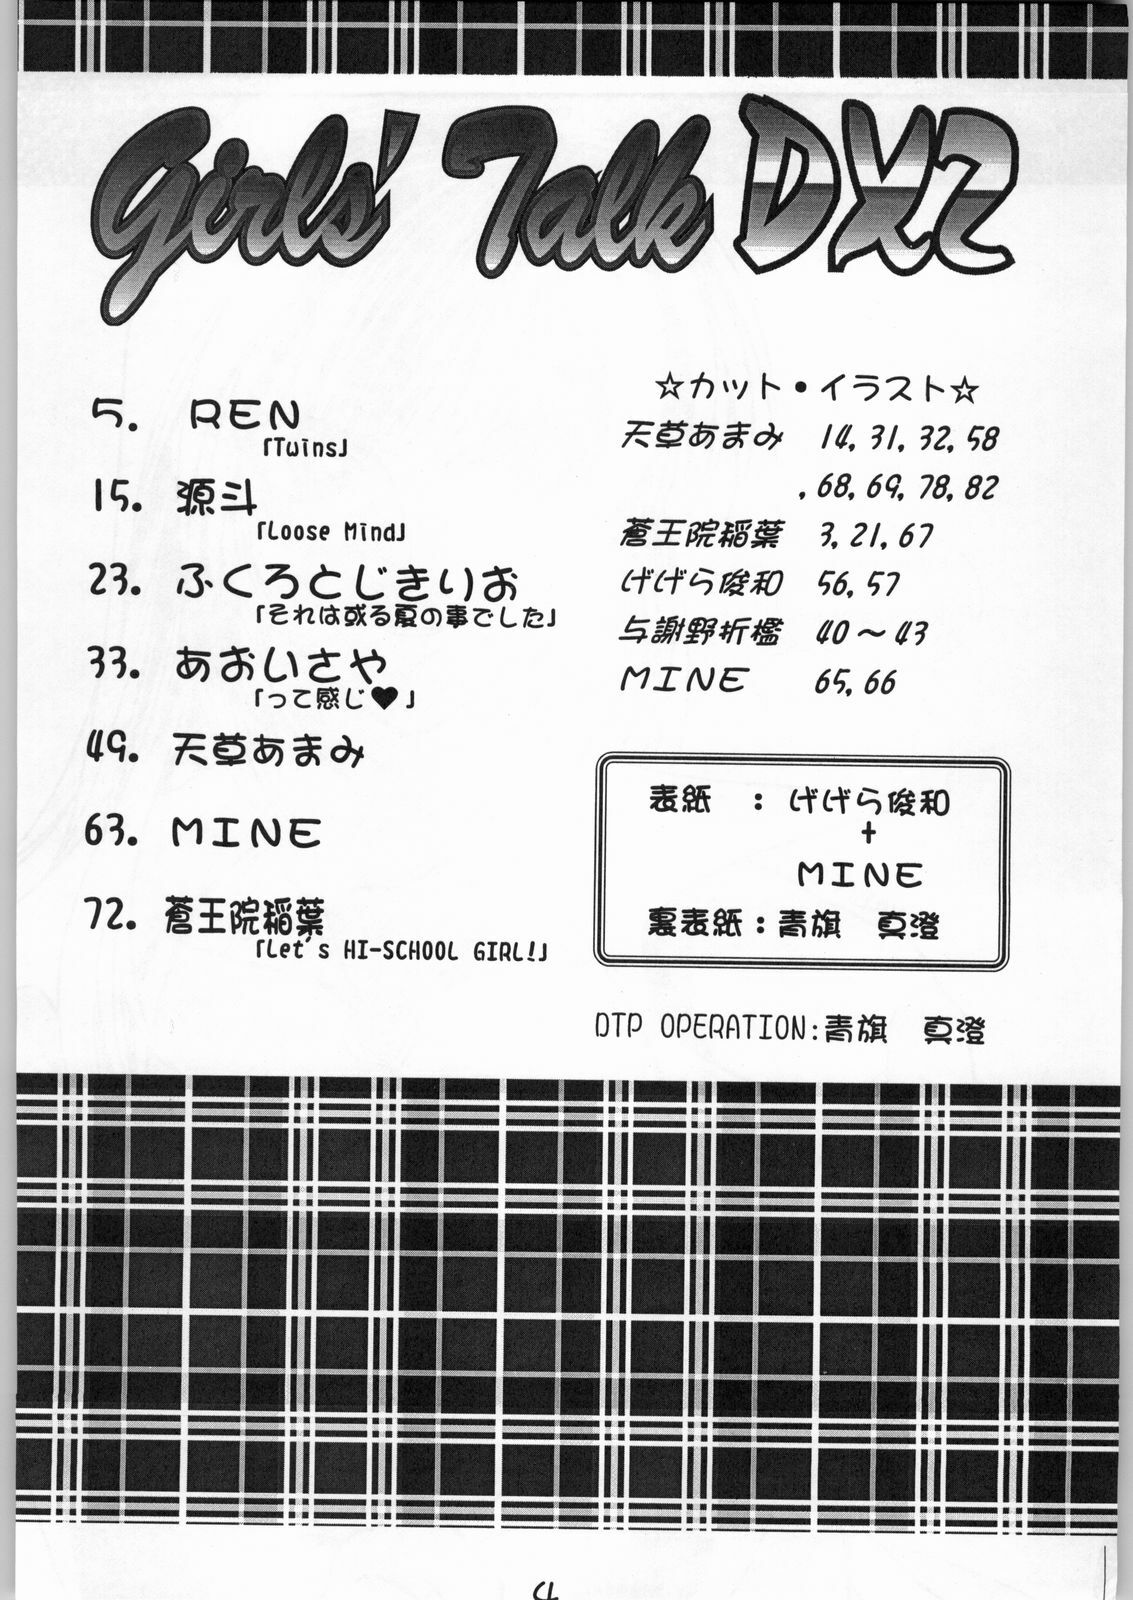 Girls' Talk DX2
5. REN
「Twins」
15. 源斗
「Loose Mind」
23. ふくろとじきりお
「それは或る夏の事でした」
33. あおいさや
「って感じ♥」
49. 天草あまみ
63. MINE
72. 蒼王院稲葉
「Let's HI-SCHOOL GIRL!」
☆カット・イラスト☆
天草あまみ 14, 31, 32, 58
, 68, 69, 78, 82
蒼王院稲葉 3, 21, 67
げげら俊和 56, 57
与謝野折檻 40～43
MINE 65, 66
表紙 : げげら俊和
+
MINE
裏表紙：青旗 真澄
DTP OPERATION:青旗 真澄
4